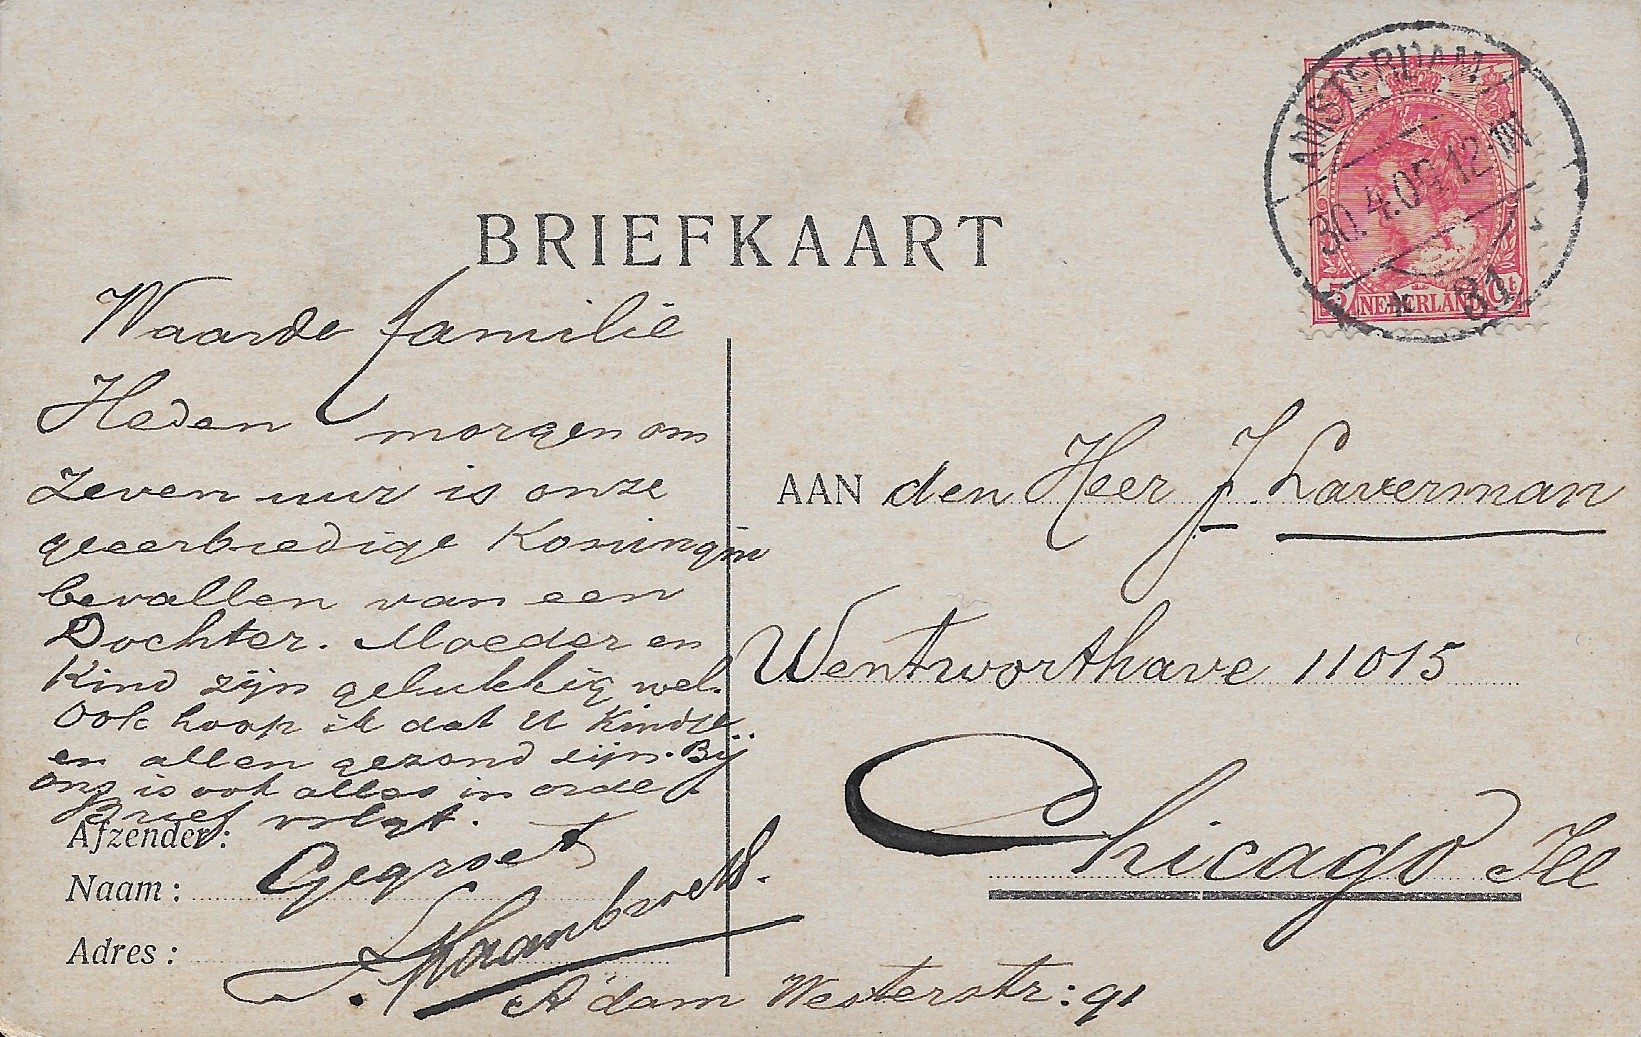 BRIEFKAART
AMSTERDAM
30.4.09. 12-1N
* 81
5 NEDERLAND Ct
Waarde familie
Heden morgen om
Zeven uur is onze
geeerbiedige Koningin
bevallen van een
Dochter. Moeder en
Kind zijn gelukkig wel.
Ook hoop ik dat U Kindje
en allen gezond zijn. Bij
ons is ook alles in orde
Brief volgt.
Afzender:
Naam: Gegroet
Adres:
A'dam Westerstr: 91
AAN den Heer J. Laverman
Wentworthave 11015
Chicago Ill